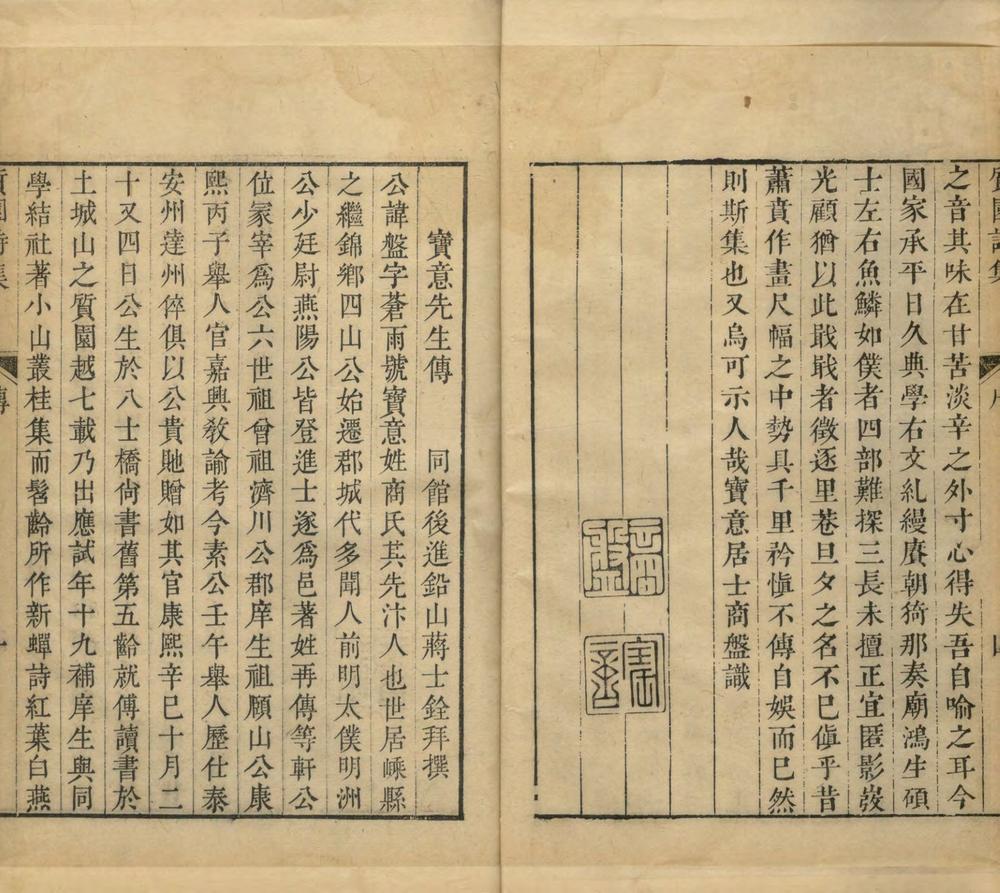 質園詩集
序
四
之音其味在甘苦淡辛之外寸心得失吾自喻之耳今
國家承平日久典學右文糺縵賡朝猗那奏廟鴻生碩
士左右魚鱗如僕者四部難探三長未擅正宜匿影
光顧猶以此戢戢者徵逐里巷旦夕之名不已傎乎昔
蕭賁作畫尺幅之中勢具千里矜愼不傳自娛而已然
則斯集也又烏可示人哉寶意居士商盤識
商盤
寶意
寶意先生傳 同館後進鉛山蔣士銓拜撰
公諱盤字蒼雨號寶意姓商氏其先汴人也世居嵊縣
之繼錦鄉四山公始遷郡城代多聞人前明太僕明洲
公少廷尉燕陽公皆登進士遂爲邑著姓再傳等軒公
位冢宰爲公六世祖曾祖濟川公郡庠生祖願山公康
熙丙子舉人官嘉興敎諭考今素公壬午舉人歷仕泰
安州達州倅俱以公貴貤贈如其官康熙辛巳十月二
十又四日公生於八士橋尙書舊第五齡就傅讀書於
土城山之質園越七載乃出應試年十九補庠生與同
學結社著小山叢桂集而髫齡所作新蟬詩紅葉白燕
質園詩集
傳
一